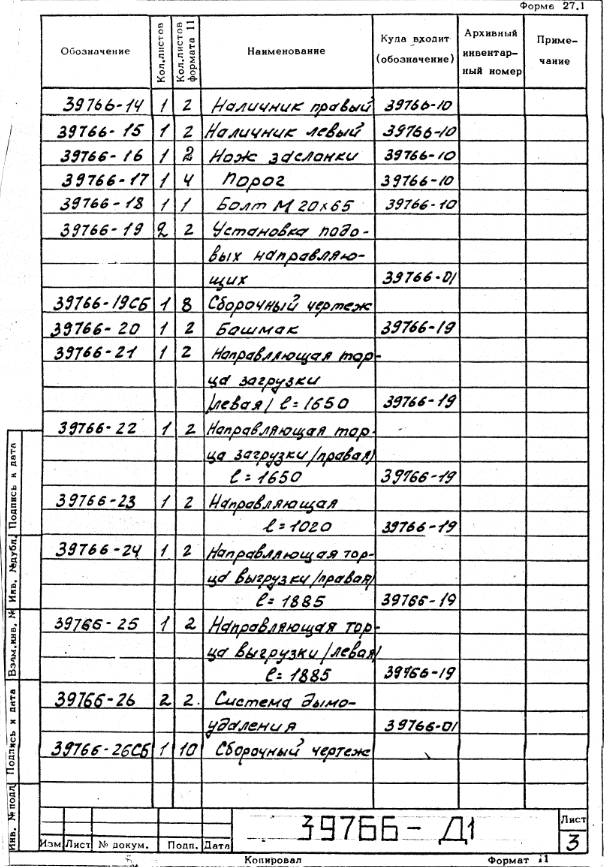 Форма 27.1
Обозначение Кол.листов Кол.листов формата 11 Наименование Куда входит (обозначение) Архивный инвентарный номер Примечание
39766-14 1 2 Наличник правый 39766-10
39766-15 1 2 Наличник левый 39766-10
39766-16 1 2 Нож заслонки 39766-10
39766-17 1 4 Порог 39766-10
39766-18 1 1 Болт М 20×65 39766-10
39766-19 2 2 Установка подо-
вых направляю-
щих 39766-01
39766-19СБ 1 8 Сборочный чертеж
39766-20 1 2 Башмак 39766-19
39766-21 1 2 Направляющая тор-
ца загрузки
/левая/ ℓ=1650 39766-19
39766-22 1 2 Направляющая тор-
ца загрузки /правая/
ℓ=1650 39766-19
39766-23 1 2 Направляющая
ℓ=1020 39766-19
39766-24 1 2 Направляющая тор-
ца выгрузки /правая/
ℓ=1885 39766-19
39766-25 1 2 Направляющая тор-
ца выгрузки /левая/
ℓ=1885 39766-19
39766-26 2 2 Система дымо-
удаления 39766-01
39766-26СБ 1 10 Сборочный чертеж
Инв. № подл Подпись и дата Взам.инв. № Инв. №дубл. Подпись и дата
39766-Д1
Лист
3
Изм Лист № докум. Подп. Дата
Копировал Формат 11